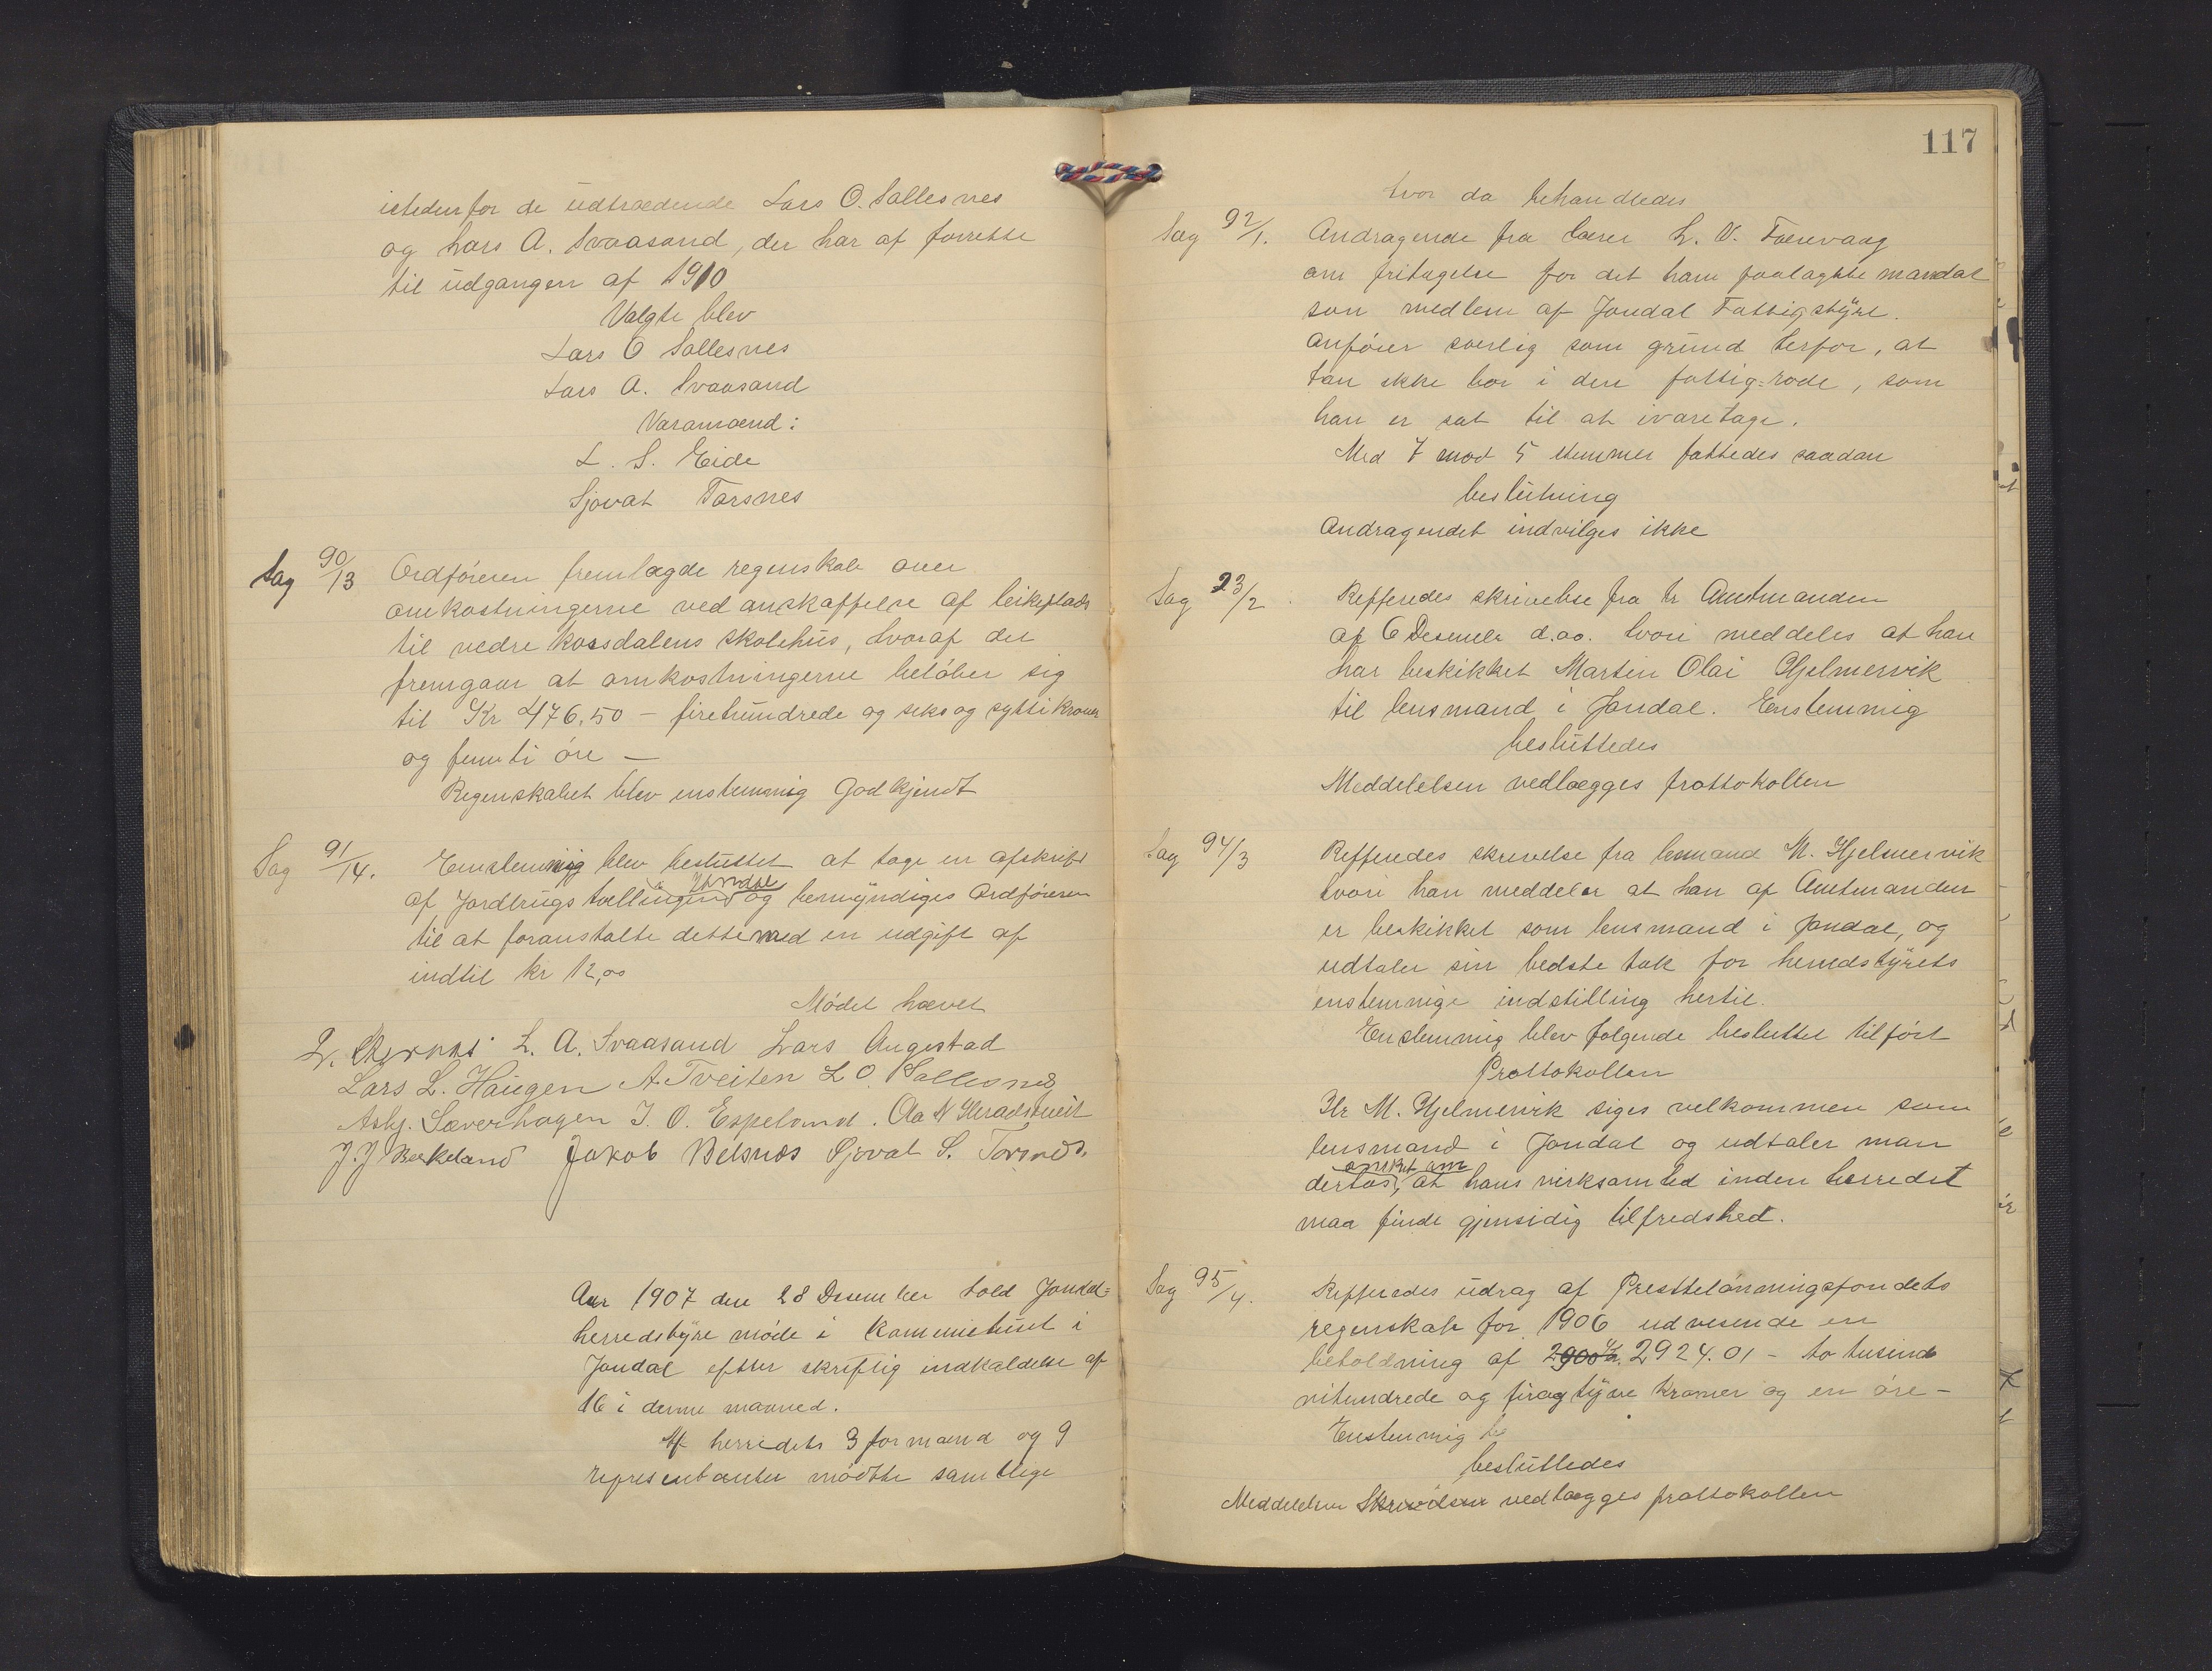 istedenfor de udtrædende Lars O. Sallesnes
og Lars A. Svaasand, der har at forrette
til udgangen af 1910
Valgte blev
Lars O Sallesnes
Lars A. Svaasand
Varamænd:
L. S. Eide
Sjovat Torsnes
Sag 90/13 Ordføreren fremlagde regnskab over
omkostningerne ved anskaffelse af leikeplads
til nedre Korsdalens skolehus, hvoraf der
fremgaar at omkostningerne beløber sig
til Kr 476,50 – firehundrede og seks og sytti kroner
og femti øre –
Regnskabet blev enstemmig Godkjendt
Sag 91/14. Enstemmig blev besluttet at tage en afskrift
af Jordbrugstællingen i Jondal og bemyndiges Ordføreren
til at foranstalte dette med en udgift af
indtil kr 12,00
Mødet hævet
L. A. Svaasand Lars Augestad
Lars L. Haugen A. Tveiten L O. Sallesnes
Asbj. Sæverhagen J. O. Espeland. Ola N Heradstveit
J. J Berkeland Jakob Belsnes Sjovat S. Torsnes.
Aar 1907 den 28 Desember hold Jondal=
herredstyre møde i Kommuehuset i
Jondal efter skriftlig indkaldelse af
16 i denne maaned.
Af herredets 3 formænd og 9
representanter mødtte samtlige
117
hvor da behandledes
Sag 92/1. Andragende fra lærer L. V. Færevaag
om fritagelse for det ham paalagtte mandat
som medlem af Jondal Fattigstyre.
Anfører særlig som grund herfor, at
han ikke bor i den fattig=rode, som
han er sat til at ivaretage.
Med 7 mod 5 stemmer fattedes saadan
beslutning
Andragendet indvilges ikke
Sag 93/2. Refferedes skrivelse fra hr Amtmanden
af 6 Desembr d.aa. hvori meddeles at han
har beskikket Martin Olai Hjelmervik
til lensmand i Jondal. Enstemmig
besluttedes
Meddelelsen vedlægges prottokollen
Sag 94/3 Refferedes skrivelse fra lensmand M. Hjelmervik
hvori han meddeler at han af Amtmanden
er beskikket som lensmand i Jondal, og
udtaler sin bedste tak for herredstyrets
enstemmige indstilling hertil.
Enstemmig blev følgende besluttet tilført
Prottokollen
Hr M. Hjelmervik siges velkommen som
lensmand i Jondal og udtaler man
derhos, ønsket om at hans virksomhed inden herredet
maa finde gjensidig tilfredshed.
Sag 95/4. Refferedes udrag af Prestelønningsfondets
regnskab for 1906 udvisende en
beholdning af 2924.01 – to tusind
nihundrede og fireogtyve Kroner og en øre –
Enstemmig be
besluttedes
Meddelelsen Skrivelsen vedlægges prottokollen